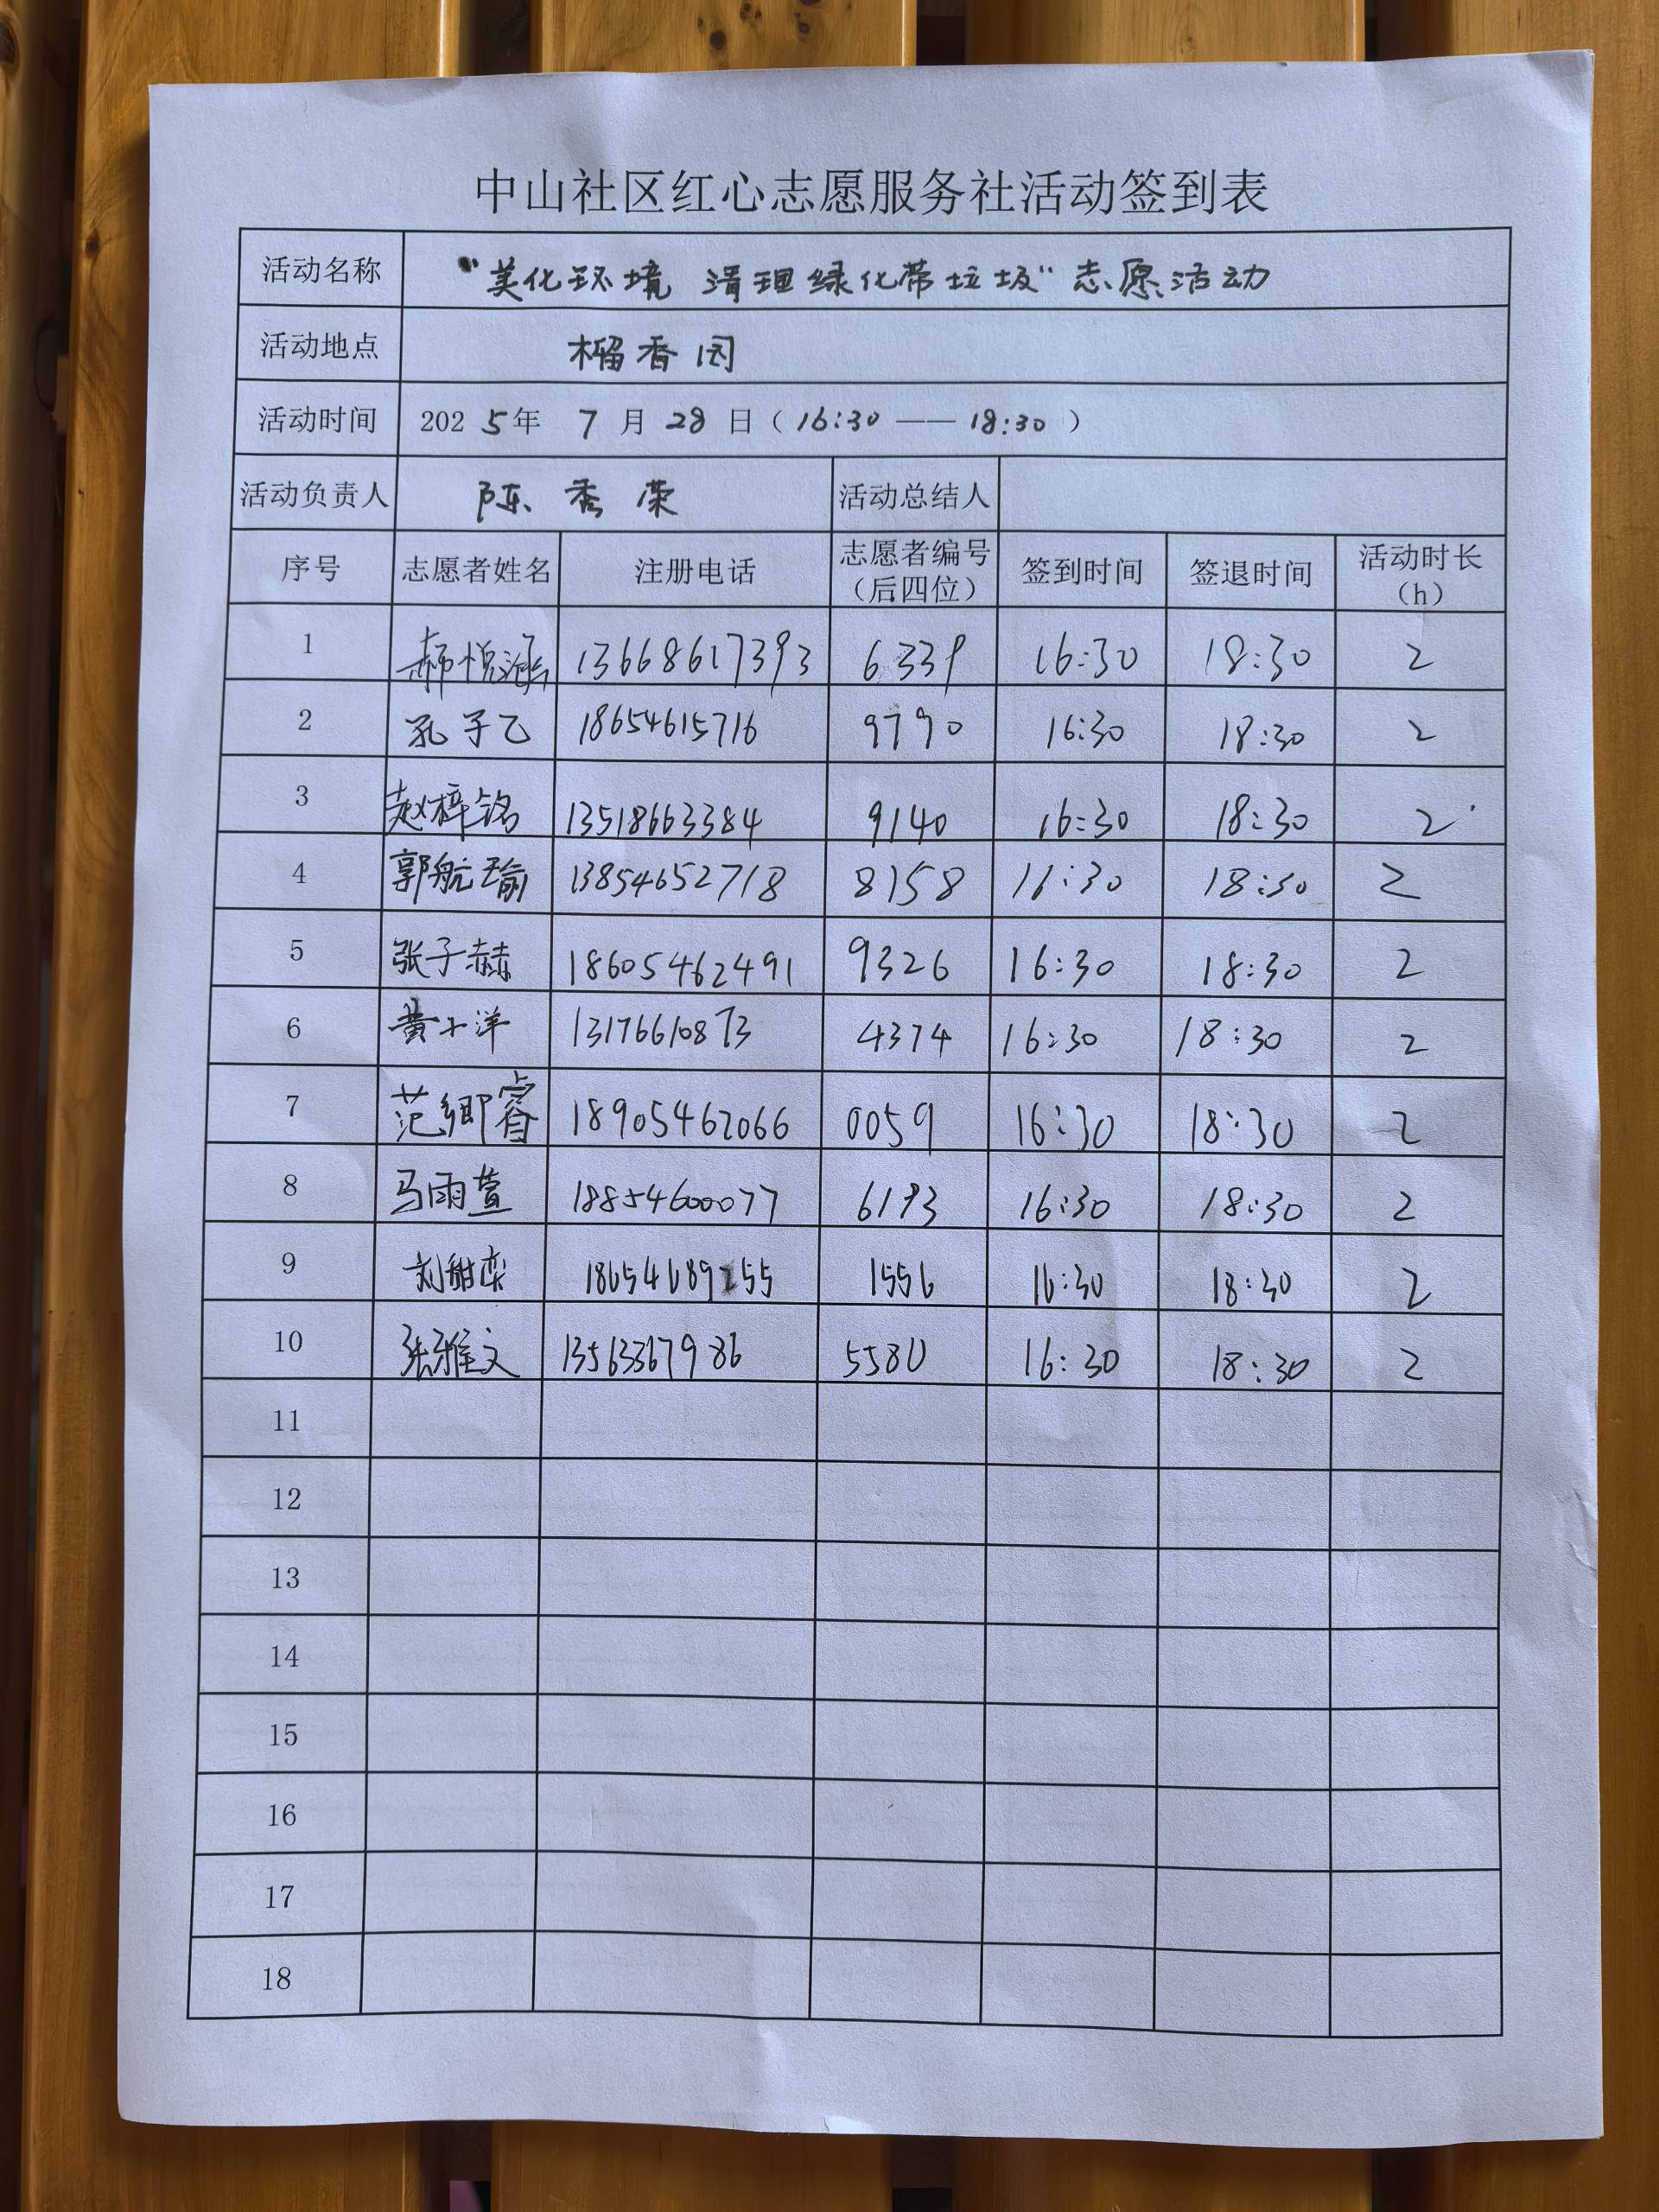 中山社区红心志愿服务社活动签到表
活动名称 "美化环境 清理绿化带垃圾"志愿活动
活动地点 榴香园
活动时间 2025年 7月28日(16:30——18:30)
活动负责人 陈秀荣 活动总结人
序号 志愿者姓名 注册电话 志愿者编号(后四位) 签到时间 签退时间 活动时长(h)
1 郝悦涵 13668617393 6339 16:30 18:30 2
2 孔子乙 18654615716 9790 16:30 18:30 2
3 赵梓铭 13518663384 9140 16:30 18:30 2
4 郭航瑜 13854652718 8158 16:30 18:30 2
5 张子赫 18605462491 9326 16:30 18:30 2
6 黄小洋 13176610873 4374 16:30 18:30 2
7 范卿睿 18905462066 0059 16:30 18:30 2
8 马雨萱 18854600077 6193 16:30 18:30 2
9 刘甜恋 18654689255 1556 16:30 18:30 2
10 张雅文 13563367986 5580 16:30 18:30 2
11
12
13
14
15
16
17
18